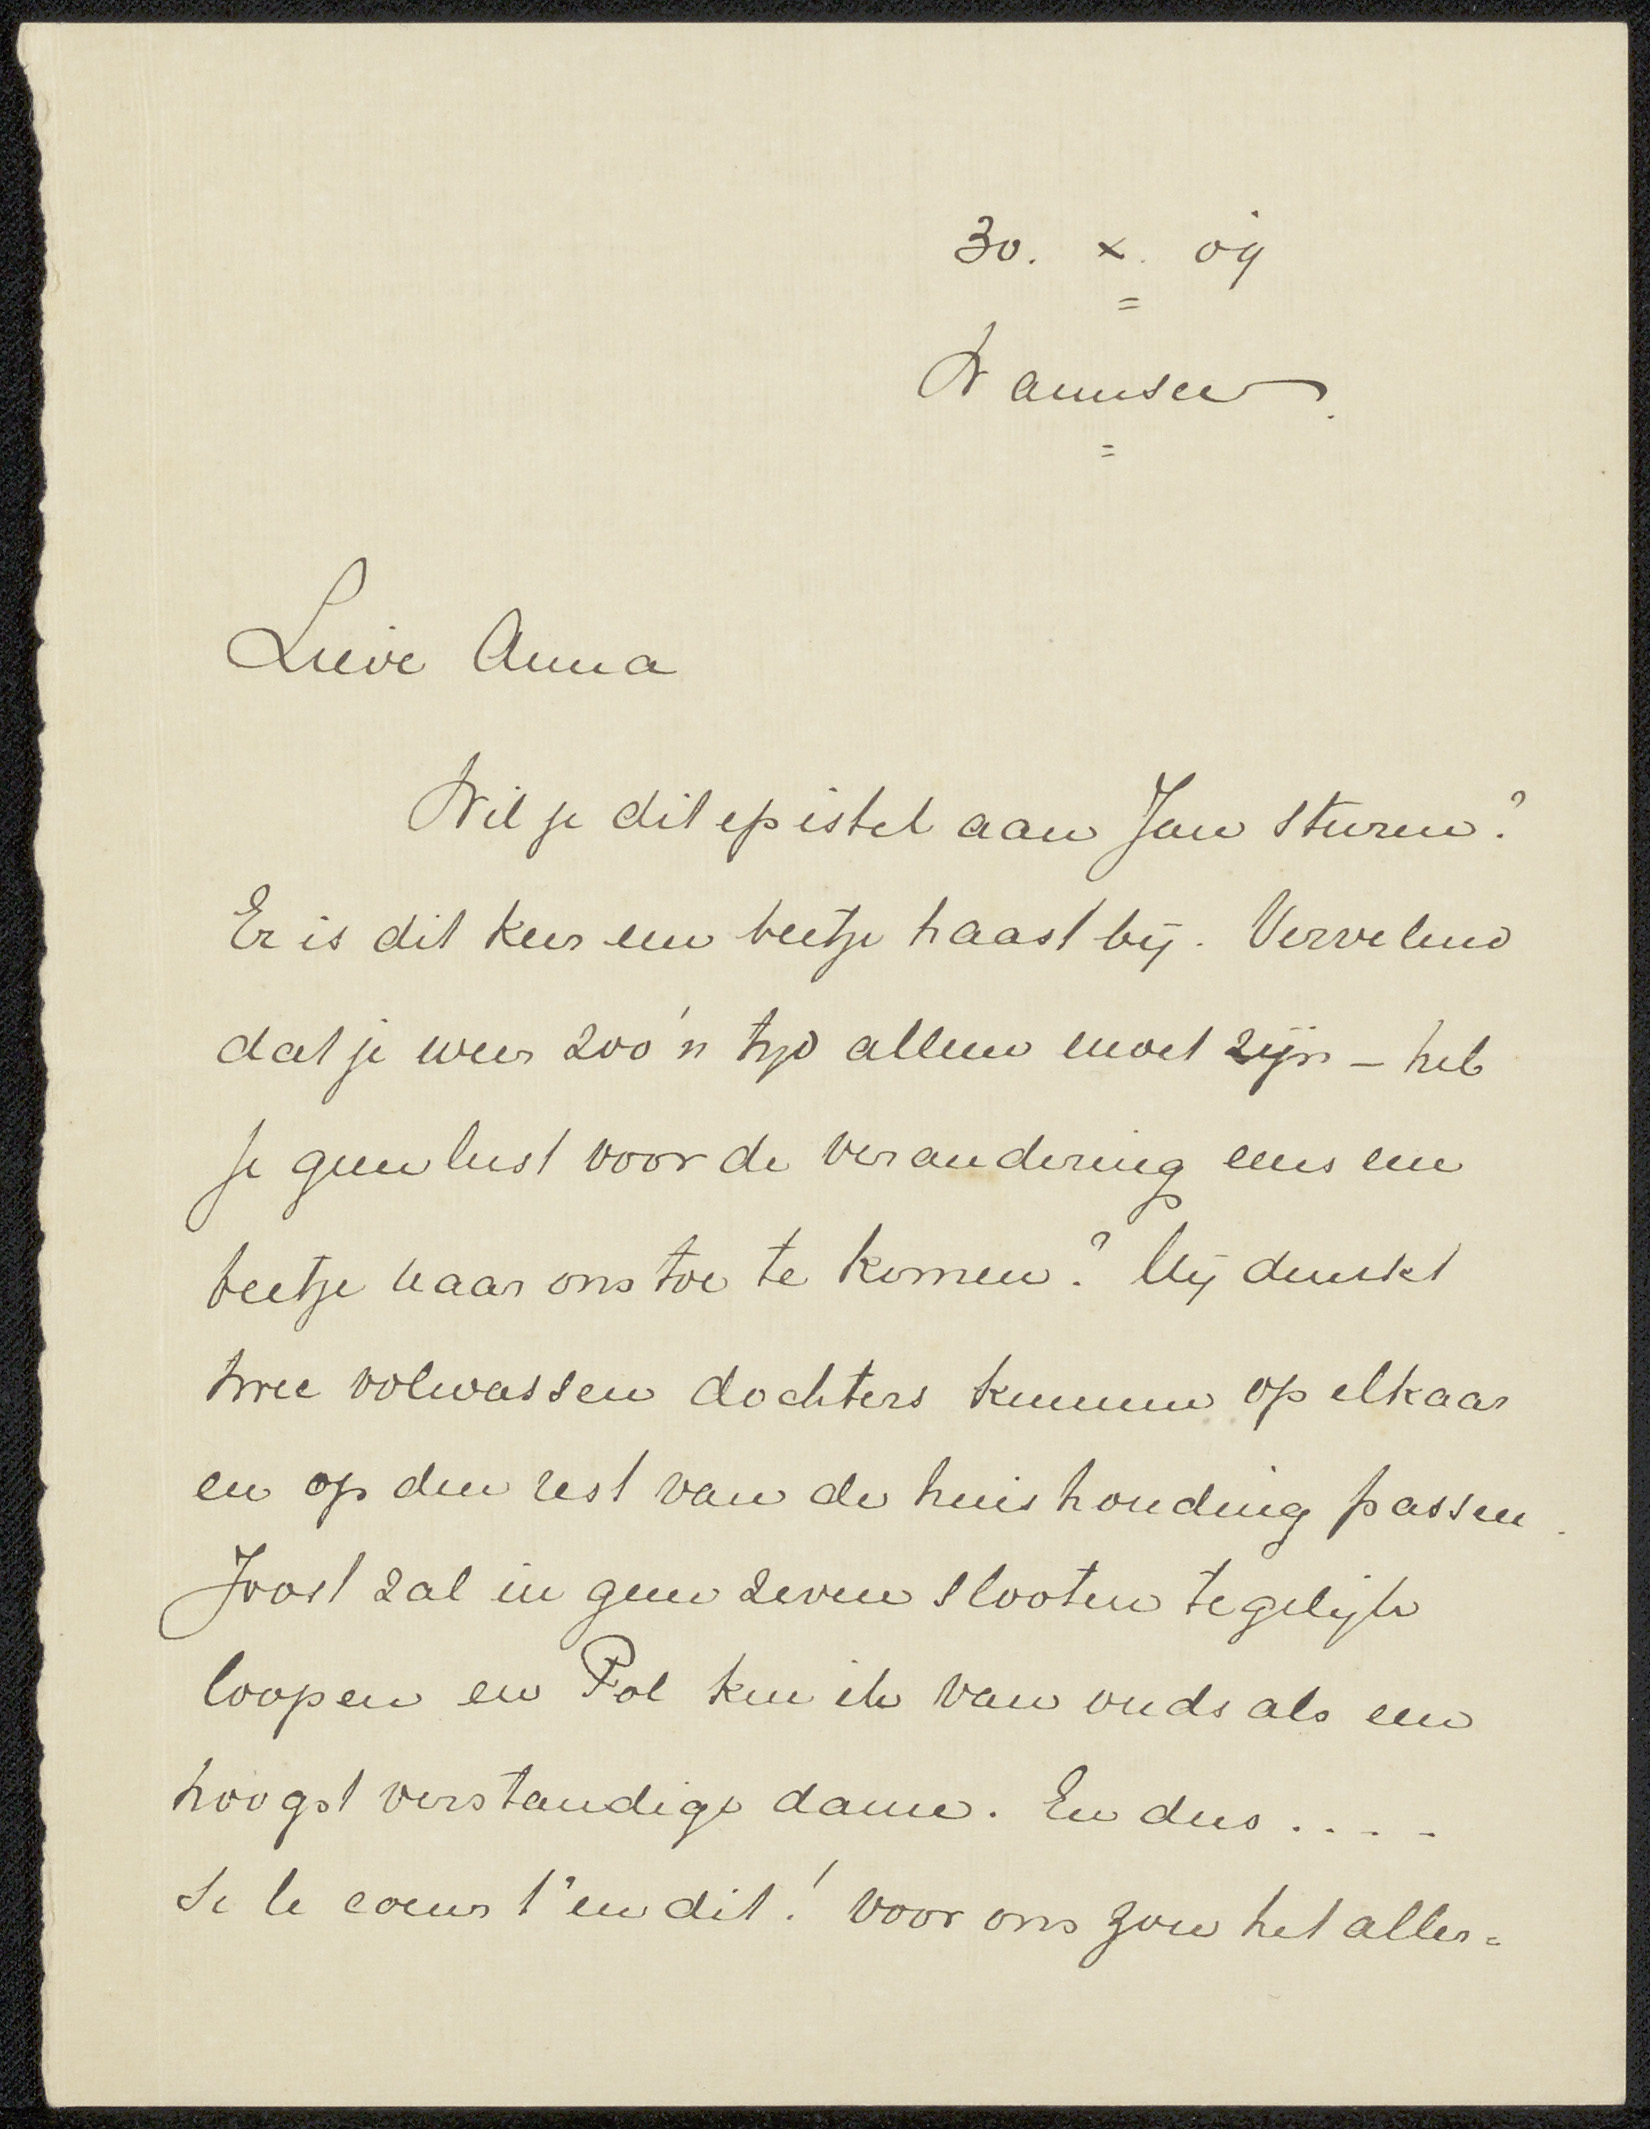 30. x. 09
Wannsee.
Lieve Anna
Wil je dit epistel aan Jan sturen?
Er is dit keer een beetje haast bij. Vervelend
dat je weer zoo'n tijd alleen moet zijn – heb
je geen lust voor de verandering eens een
beetje naar ons toe te komen? Mij dunkt
twee volwassen dochters kunnen op elkaar
en op den rest van de huishouding passen.
Joost zal in geen zeven slooten tegelijk
loopen en Pol ken ik van ouds als een
hoogst verstandige dame. En dus ....
Si le coeur t'en dit! Voor ons zou het aller=